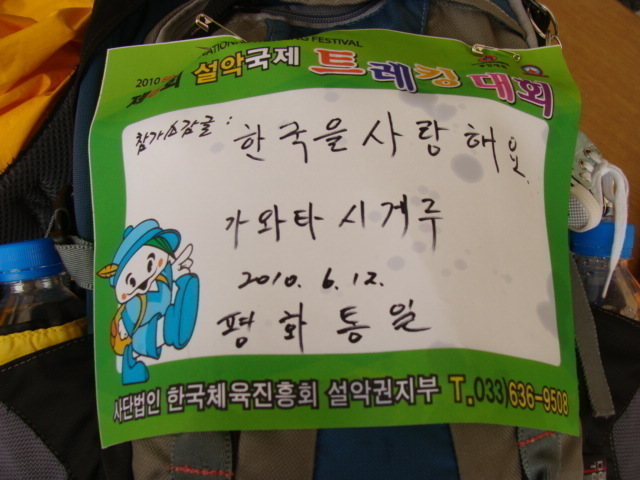 NATIONAL TREKKING FESTIVAL
2010 제 회 설악국제 트레킹 대회
참가소감글 : 한국을 사랑해요.
가와타 시게루
2010. 6. 12.
평화통일
사단법인 한국체육진흥회 설악권지부 T.033)636-9508